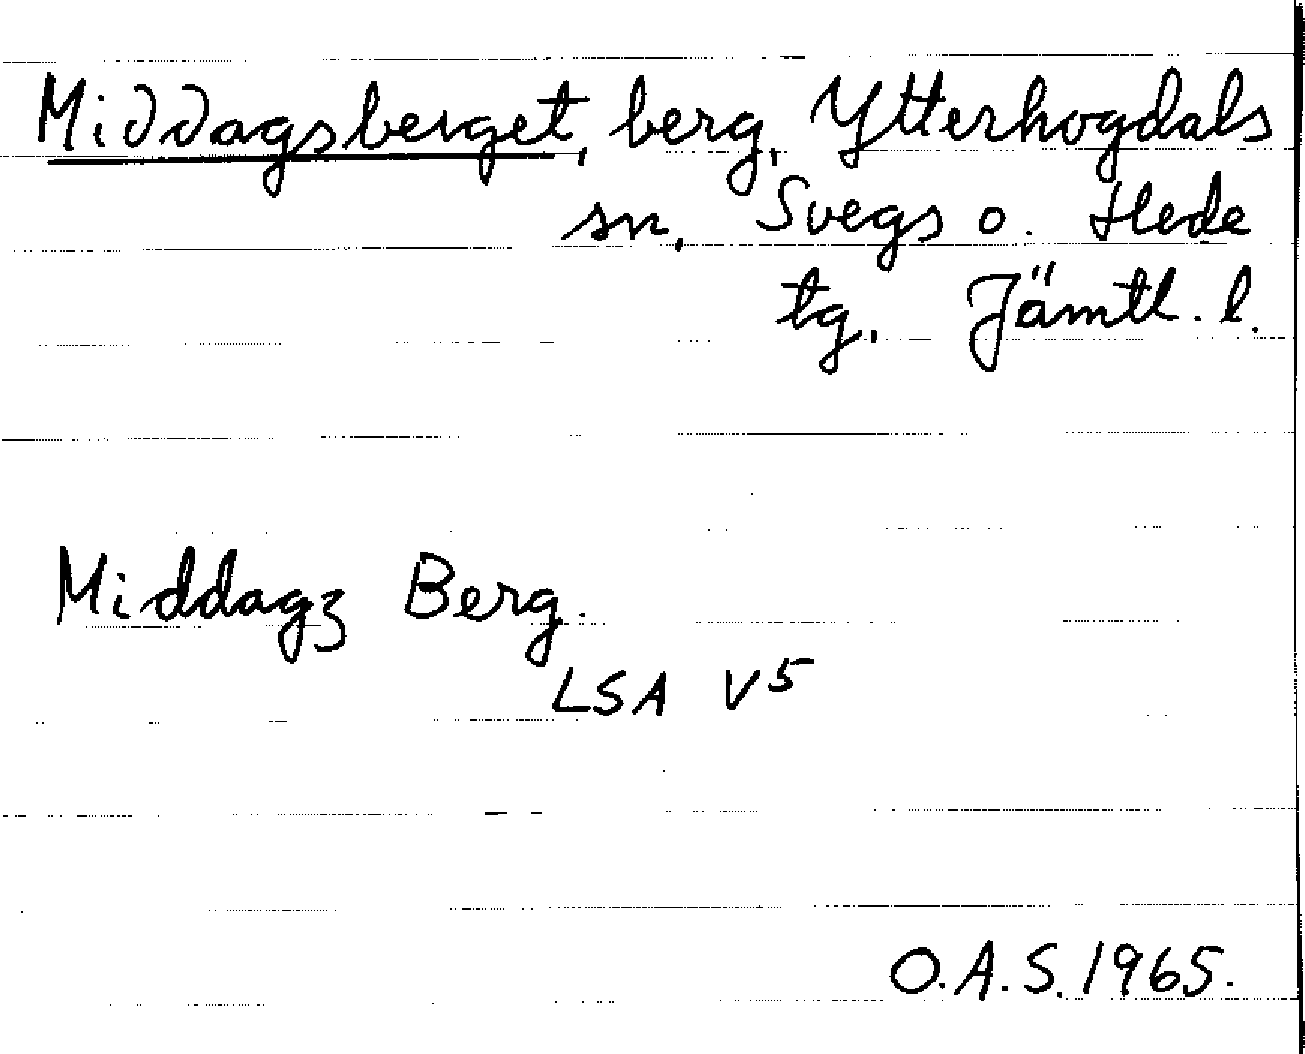 Middagsberget, berg, Ytterhogdals
sn, Svegs o. Hede
tg, Jämtl. l.
Middagz Berg.
LSA V5
O.A.S. 1965.